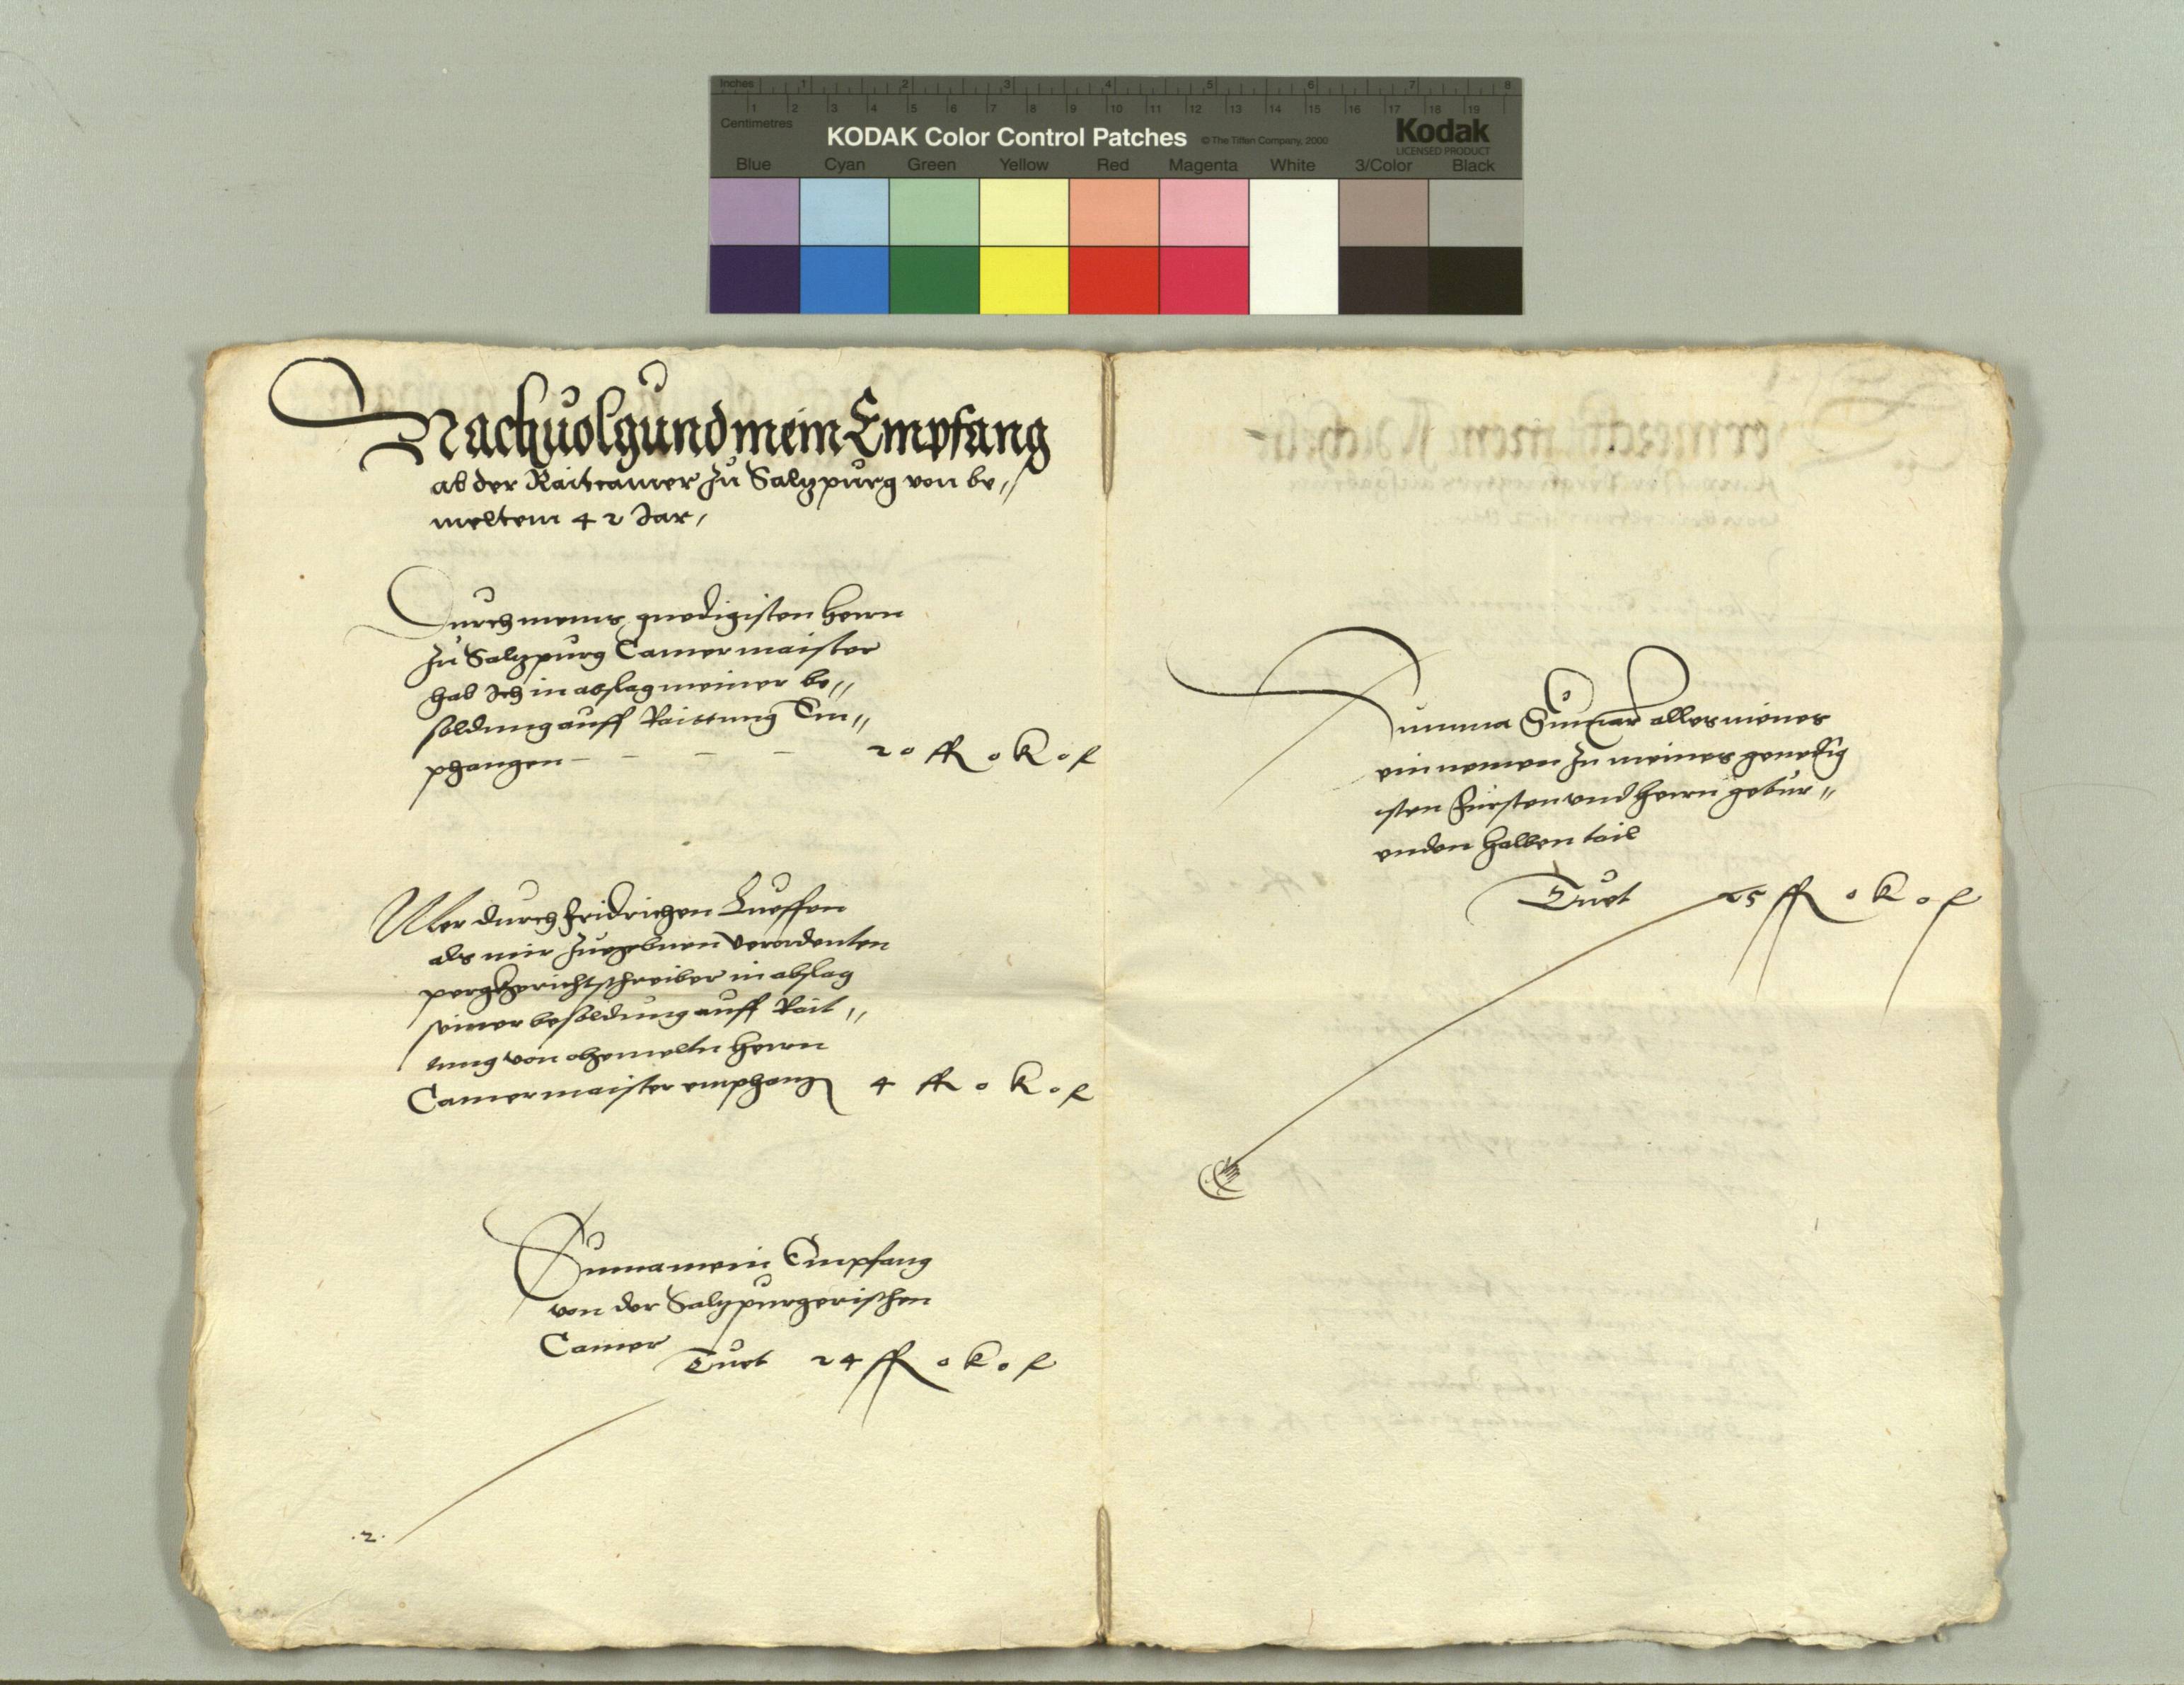 Inches 1 2 3 4 5 6 7 8
1 2 3 4 5 6 7 8 9 10 11 12 13 14 15 16 17 18 19
Centimetres
KODAK Color Control Patches © The Tiffen Company, 2000 Kodak
LICENSED PRODUCT
Blue Cyan Green Yellow Red Magenta White 3/Color Black
Nachuolgund mein Empfang
ab der Raitcamer zu Salzpurg von be„
meltem 42 Jar,
Durch meins gnedigisten herrn
zu Salzpurg Camermaister
hab Ich in abslag meiner be„
soldung auff Raittung Em„
phangen – – – – 20 fl 0 k 0 f
Aber durch Fridrichen
als mir zuegebnen verordenten
pergkgerichtschreiber in abslag
seiner besoldung auff Rait„
tung von obgemeltn herrn
Camermaister emphangen 4 fl 0 k 0 f
Suma mein Empfang
von der Salzpurgerischen
Camer
Tuet 24 fl 0 k 0 f
.2.
Summa Sumar alles meines
einnemen zu meines genedig
isten Fürsten und herrn gebür„
enden halben tail
Tuet 25 fl 0 k 0 f